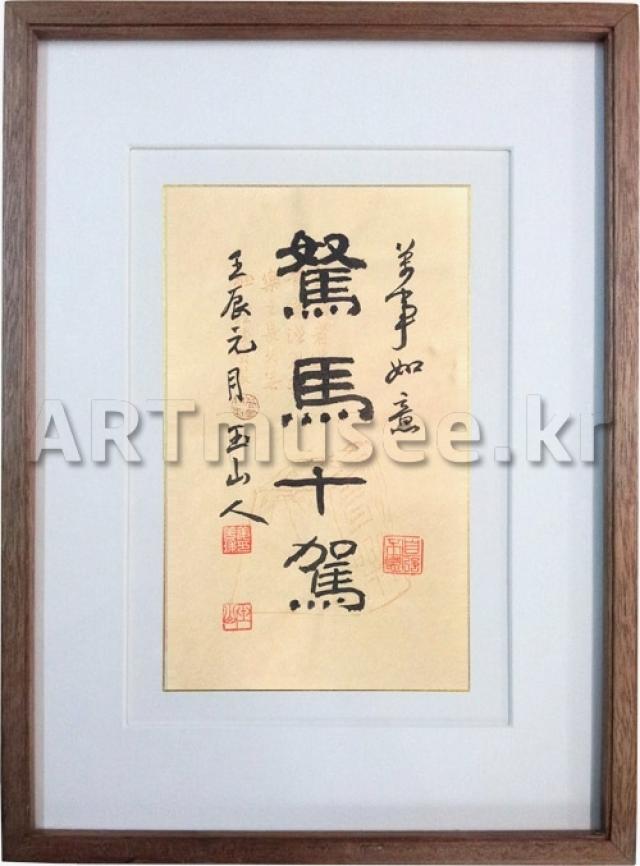 萬事如意
駑馬十駕
壬辰元月 玉山人
ARTmusee.kr